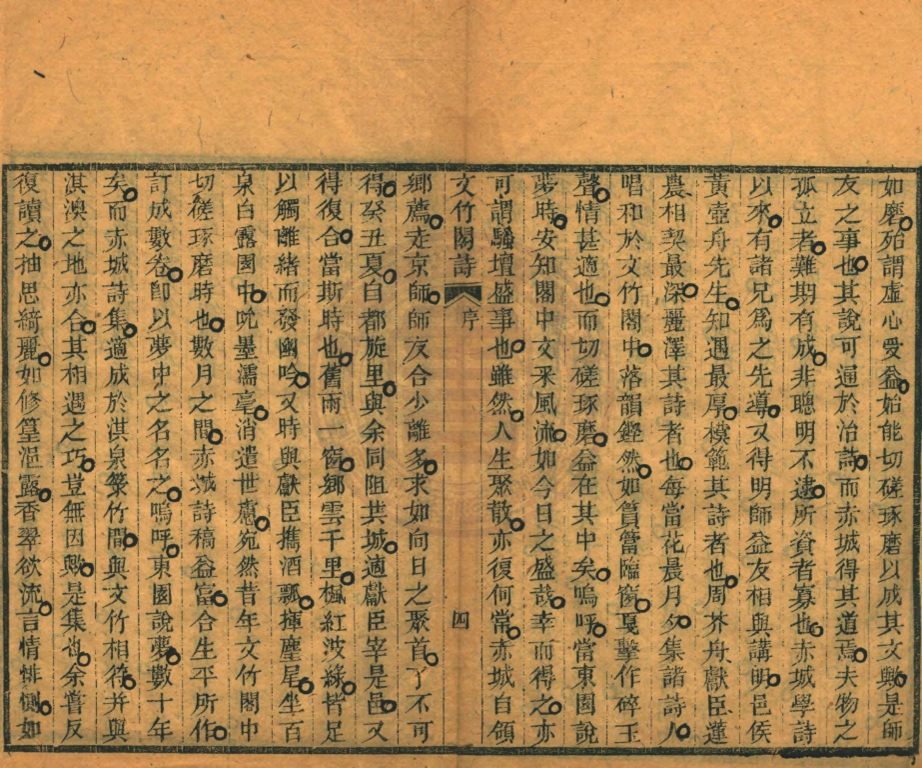 如磨殆謂虛心受益始能切磋琢磨以成其文歟是師
友之事也其說可通於治詩而赤城得其道焉夫物之
孤立者難期有成非聰明不逮所資者寡也赤城學詩
以來有諸兄爲之先導又得明師益友相與講明邑侯
黃壺舟先生知遇最厚模範其詩者也周芥舟獻臣蓮
農相契最深麗澤其詩者也每當花晨月夕集諸詩人
唱和於文竹閣中落韻鏗然如篔簹臨窗戛擊作碎玉
聲情甚適也而切磋琢磨益在其中矣嗚呼當東園說
夢時安知閣中文釆風流如今日之盛哉幸而得之亦
可謂騷壇盛事也雖然人生聚散亦復何常赤城自領
文竹閣詩 序 四
鄉薦走京師師友合少離多求如向日之聚首了不可
得癸丑夏自都旋里與余同阻共城適獻臣宰是邑又
得復合當斯時也舊雨一窗鄉雲千里楓紅波綠皆足
以觸離緒而發幽吟又時與獻臣携酒瓢揮麈尾坐百
泉白露園中吮墨濡毫消遣世慮宛然昔年文竹閣中
切磋琢磨時也數月之間赤城詩稿益富合生平所作
訂成數卷卽以夢中之名名之嗚呼東園說夢數十年
矣而赤城詩集適成於淇泉菉竹間與文竹相符并與
淇澳之地亦合其相遇之巧豈無因歟是集也余嘗反
復讀之抽思綺麗如修篁浥露香翠欲流言情悱惻如